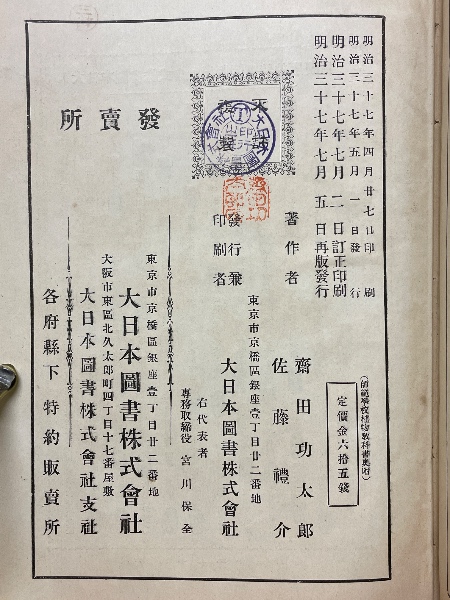 明治三十七年四月廿七日印刷
明治三十七年五月一日發行
明治三十七年七月二日訂正印刷
明治三十七年七月五日再版發行
(師範學校植物敎科書奧附)
定價金六拾五錢
著作者
齋田功太郎
佐藤禮介
發行兼
印刷者
東京市京橋區銀座壹丁目廿二番地
大日本圖書株式會社
右代表者
專務取締役 宮川保全
發賣所
東京市京橋區銀座壹丁目廿二番地
大日本圖書株式會社
大阪市東區北久太郎町四丁目十七番屋敷
大日本圖書株式會社支社
各府縣下特約販賣所